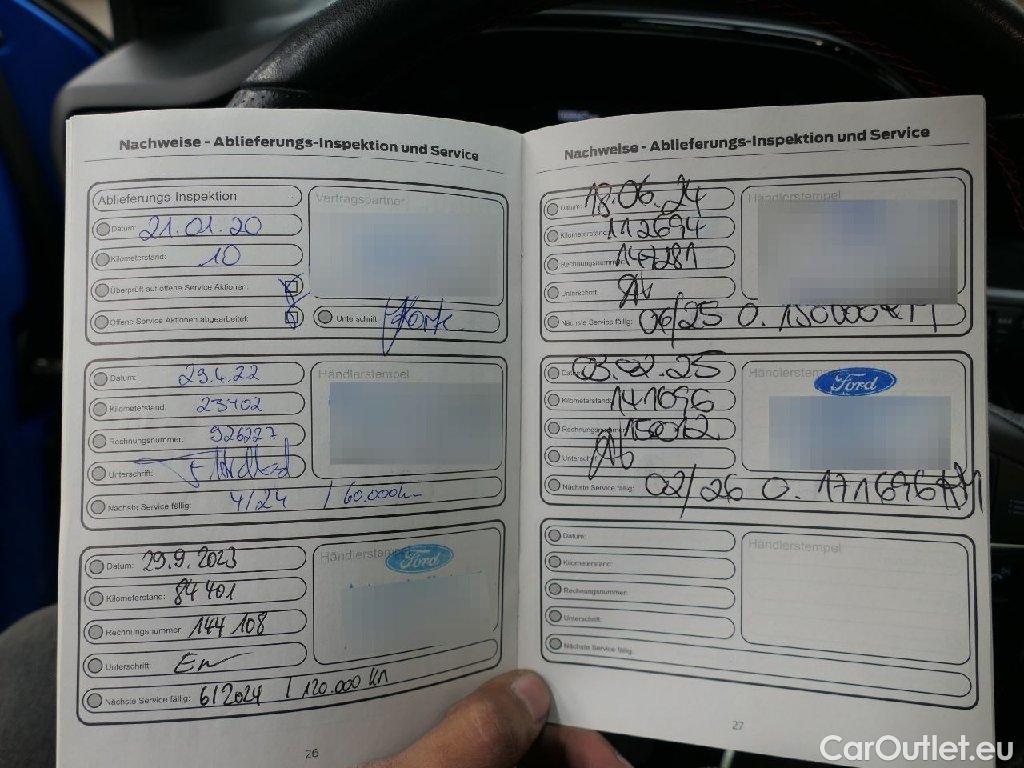 Nachweise - Ablieferungs-Inspektion und Service
Ablieferungs Inspektion
Vertragspartner
Datum: 21.01.20
Kilometerstand: 10
Überprüft auf offene Service Aktionen:
Offene Service Aktionen abgearbeitet:
Unterschrift:
Datum: 29.4.22
Händlerstempel
Kilometerstand: 23402
Rechnungsnummer: 926227
Unterschrift:
Nächste Service fällig: 4/24 / 60.000km
Datum: 29.9.2023
Händlerstempel
Ford
Kilometerstand: 84401
Rechnungsnummer: 144108
Unterschrift:
Nächste Service fällig: 6/2024 / 120.000 km
26
Nachweise - Ablieferungs-Inspektion und Service
Datum: 18.06.24
Händlerstempel
Kilometerstand: 112694
Rechnungsnummer: 147281
Unterschrift:
Nächste Service fällig: 06/25 o. 130000KM
Datum: 03.02.25
Händlerstempel
Ford
Kilometerstand: 141696
Rechnungsnummer: 150012
Unterschrift:
Nächste Service fällig: 02/26 o. 171696KM
Datum:
Händlerstempel
Kilometerstand:
Rechnungsnummer:
Unterschrift:
Nächste Service fällig:
27
CarOutlet.eu